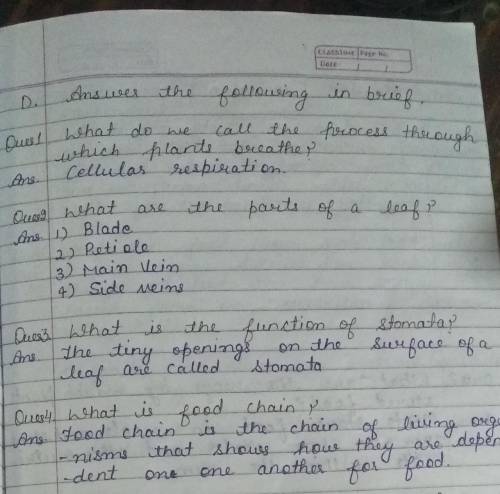 Classtime Page No.
Date / /
D. Answer the following in brief.
Ques1 What do we call the process through
which plants breathe?
Ans. Cellular respiration.
Ques2 What are the parts of a leaf?
Ans 1) Blade
2) Petiole
3) Main Vein
4) Side veins
Ques3. What is the function of stomata?
Ans. The tiny openings on the surface of a
leaf are called stomata
Ques4 What is food chain?
Ans. Food chain is the chain of living orga
-nisms that shows how they are depen
-dent one one another for food.